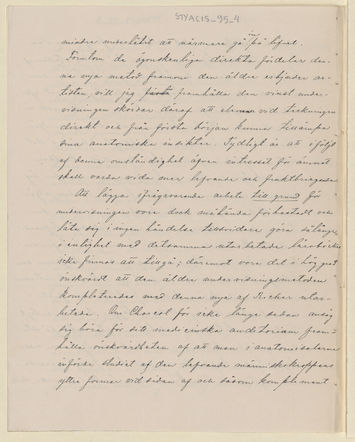 STYACIS_95_4
mindre medelbart att närmare gå in på ljuset.
Förutom de ögonskenliga direkta fördelar den-
na nya metod framom den äldre erbjuder ar-
tisten, vill jag framhålla den vinst under-
visningen skördar däraf att eleven vid teckningen
direkt och från första början kunna tillämpa
sina anatomiska insikter. Tydligt är att i följd
af denna omständighet äfven intresset för ämnet
skall varda vida mer lefvande och fruktbringande.
Att lägga ifrågavarande arbete till grund för
undervisningen vore dock måhända förhastadt och
låte sig i ingen händelse tillsvidare göra så länge
i enlighet med detsamma utarbetade läroböcker
icke finnas att tillgå; däremot vore det i hög grad
önskvärdt att den äldre undervisningsmetoden
kompletterades med denna nya af Richer utar-
betade. Om Charcot för icke länge sedan ansåg
sig böra för sitt medicinska auditorium fram-
hålla önskvärdheten af att man i anatomisalarne
införde studiet af den lefvande människokroppens
yttre former vid sidan af och såsom komplement